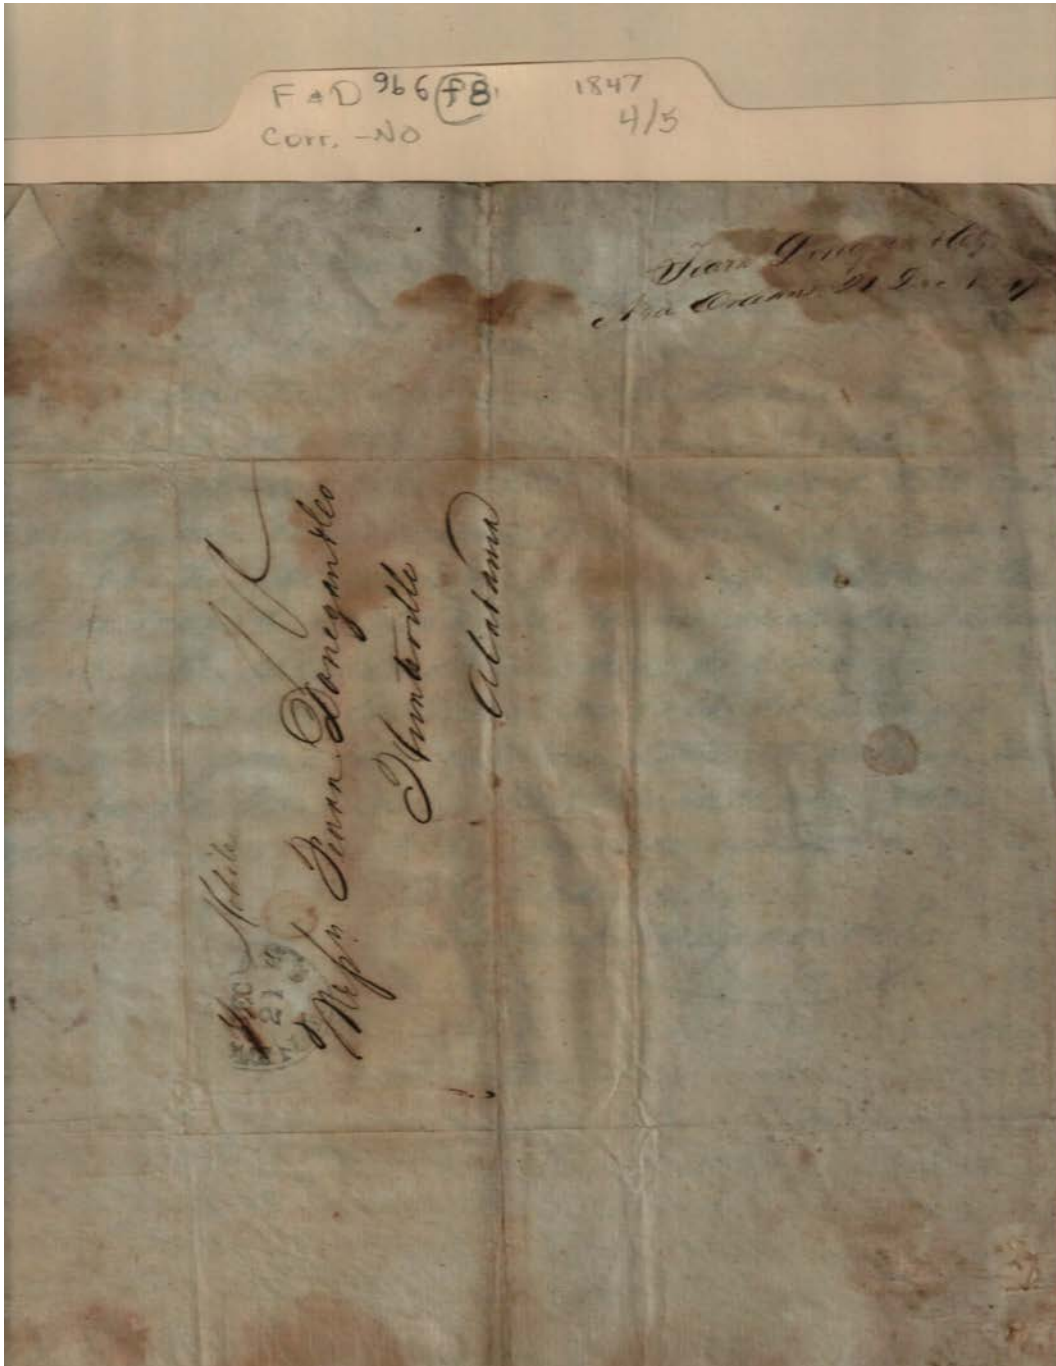 F & D 9b 6 f8 1847
Corr. - NO 4/5
Fearn Donegan & Co
New Orleans 21 Dec
Mobile
DEC
21
Messrs Fearn Donegan & Co
Huntsville
Alabama